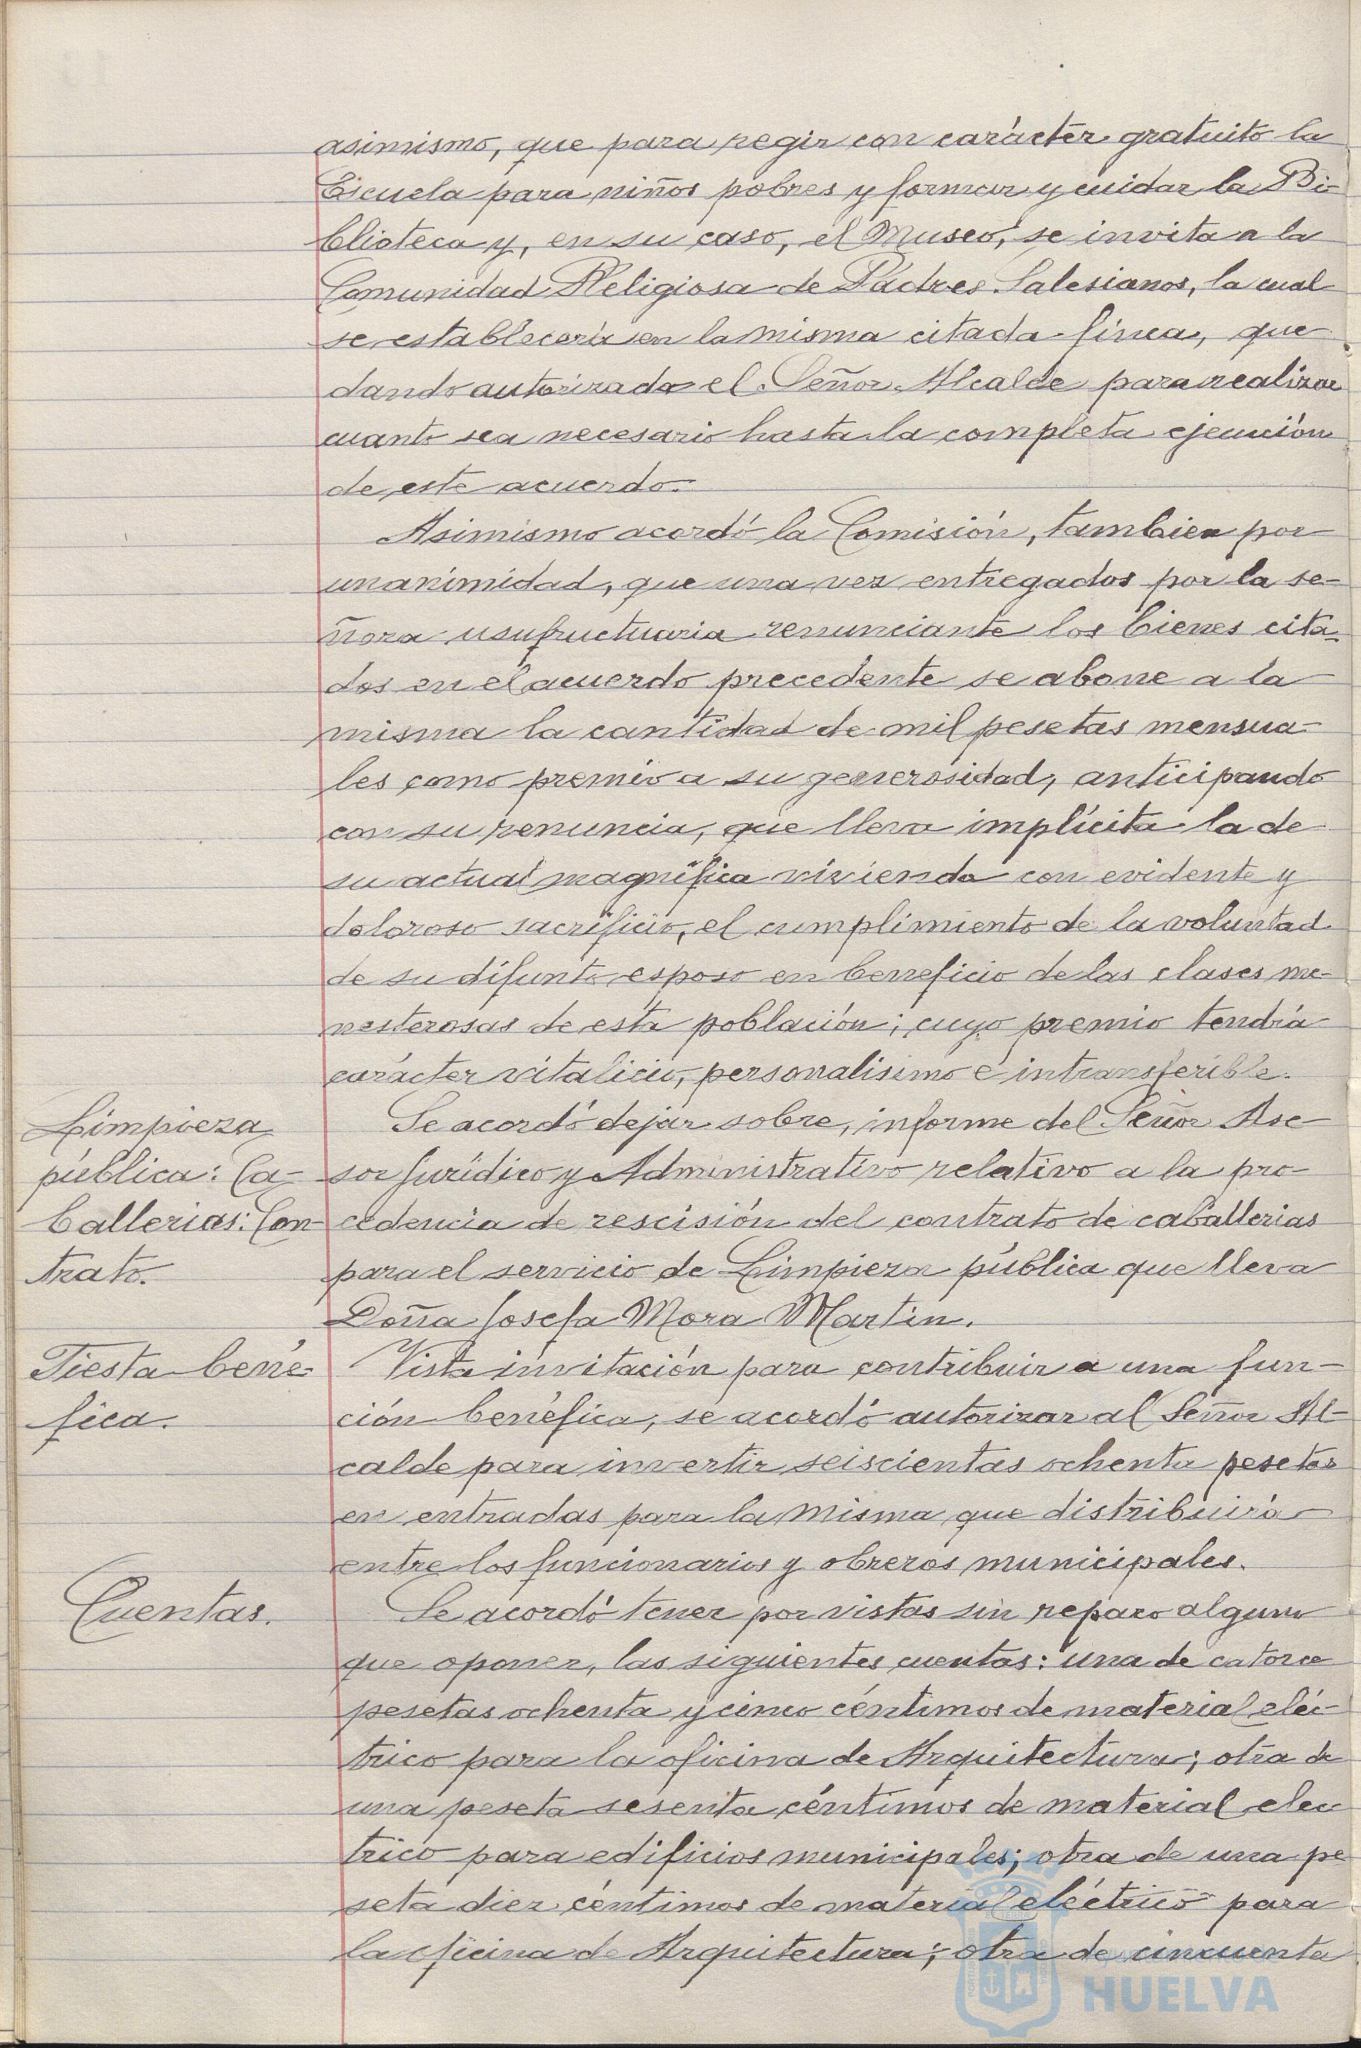 asimismo, que para regir con carácter gratuito la
Escuela para niños pobres y formar y cuidar la Bi-
blioteca y, en su caso, el Museo, se invita a la
Comunidad Religiosa de Padres Salesianos, la cual
se establecería en la misma citada finca, que-
dando autorizado el Señor Alcalde para realizar
cuanto sea necesario hasta la completa ejecución
de este acuerdo.
Asimismo acordó la Comisión, tambien por
unanimidad, que una vez entregados por la se-
ñora usufructuaria renunciante los bienes cita-
dos en el acuerdo precedente se abone a la
misma la cantidad de mil pesetas mensua-
les como premio a su generosidad, anticipando
con su renuncia, que lleva implícita la de
su actual magnífica vivienda con evidente y
doloroso sacrificio, el cumplimiento de la voluntad
de su difunto esposo en beneficio de las clases me-
nesterosas de esta población; cuyo premio tendrá
carácter vitalicio, personalisimo e intransferible.
Limpieza
pública: Ca-
ballerias: Con-
trato.
Se acordó dejar sobre, informe del Señor Ase-
sor Jurídico y Administrativo relativo a la pro-
cedencia de rescisión del contrato de caballerias
para el servicio de Limpieza pública que lleva
Doña Josefa Mora Martin.
Fiesta bené-
fica.
Vista invitación para contribuir a una fun-
ción benéfica, se acordó autorizar al Señor Al-
calde para invertir seiscientas ochenta pesetas
en entradas para la misma que distribuirá
entre los funcionarios y obreros municipales.
Cuentas.
Se acordó tener por vistas sin reparo alguno
que oponer, las siguientes cuentas: una de catorce
pesetas ochenta y cinco céntimos de material eléc-
trico para la oficina de Arquitectura; otra de
una peseta sesenta céntimos de material elec
trico para edificios municipales; otra de una pe
seta diez céntimos de material eléctrico para
la oficina de Arquitectura; otra de cincuenta
HUELVA